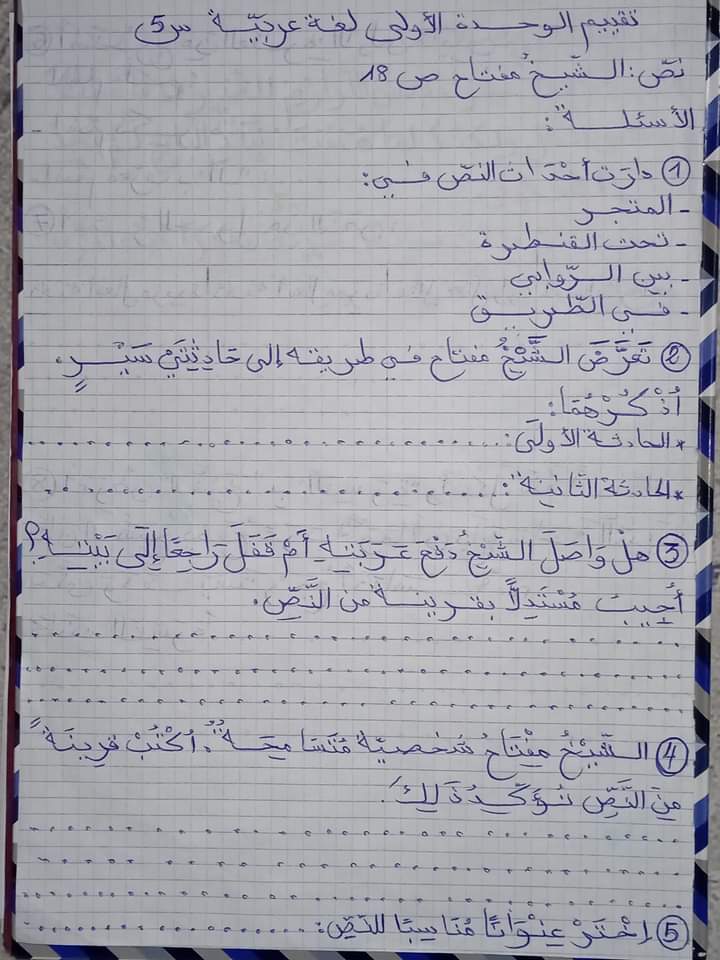 تقييم الوحدة الأولى لغة عربيّة س5
نصّ: الشّيخُ مفتاح ص 18
الأسئلة:
① دارت أحداث النصّ في:
- المتجر
- تحت القنطرة
- بين الرّوابي
- في الطّريق
② تَعَرَّضَ الشَّيْخُ مفتاح في طريقه إلى حَادِثَتَيْ سَيْرٍ،
أُذْكُرْهُمَا:
* الحادثة الأولَى: ..............................
* الحادثة الثّانية: ..............................
③ هلْ وَاصَلَ الشّيْخُ دَفْعَ عَرَبَتِهِ أَمْ قَفَلَ رَاجِعًا إِلَى بَيْتِهِ؟
أُجِيبُ مُسْتَدِلاًّ بقرينة من النَّصِّ.
..............................
..............................
..............................
④ الشّيْخُ مِفْتَاحُ شخصيّة مُتَسَامِحَةٌ. اُكْتُبْ قرِينَةً
مِنَ النَّصِّ تُؤَكِّدُ ذَلِكَ.
..............................
..............................
..............................
⑤ اِخْتَرْ عِنْوَانًا مُنَاسِبًا للنصِّ: ..............................